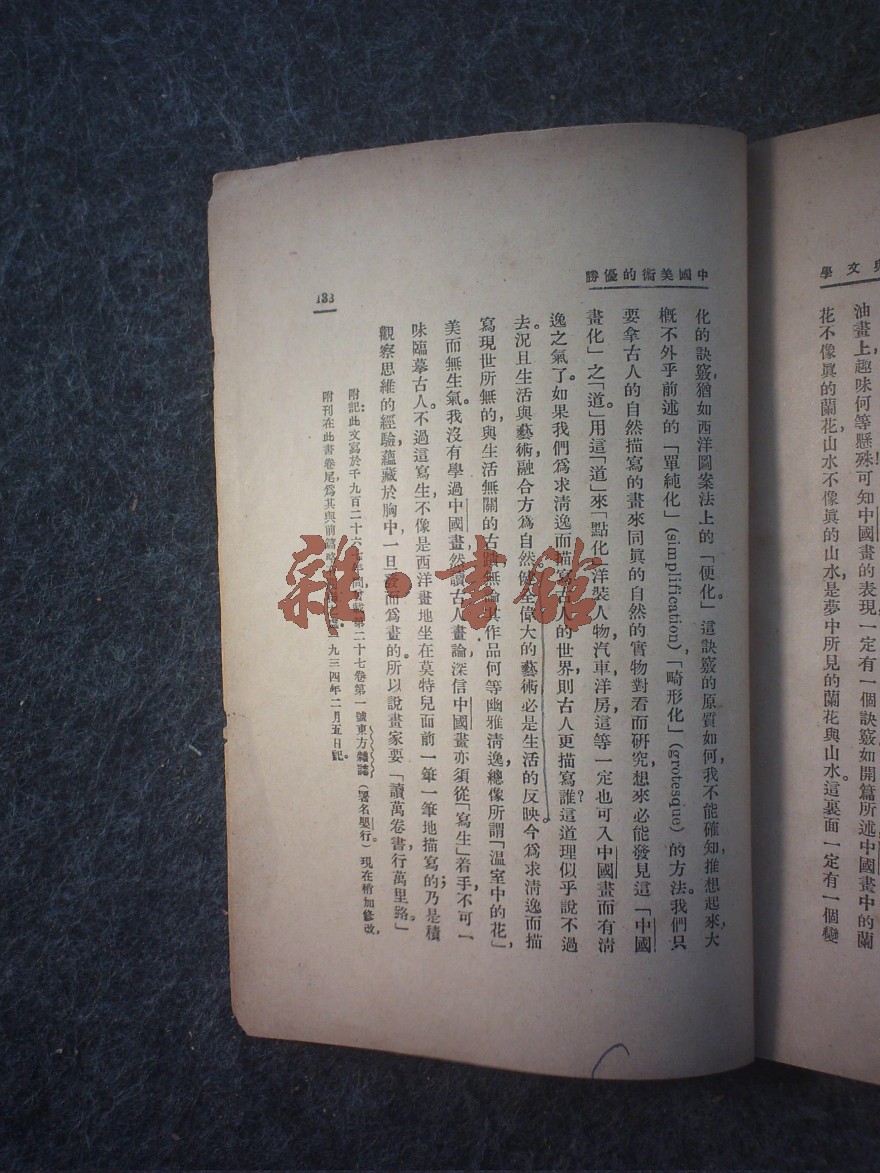 與文學
油畫上，趣味何等懸殊！可知中國畫的表現，一定有一個訣竅。如開篇所述，中國畫中的蘭
花不像眞的蘭花，山水不像眞的山水，是夢中所見的蘭花與山水。這裏面一定有一個變
中國美術的優勝
化的訣竅，猶如西洋圖案法上的「便化。」這訣竅的原質如何，我不能確知，推想起來，大
概不外乎前述的「單純化」(simplification)，「畸形化」(grotesque)的方法。我們只
要拿古人的自然描寫的畫來同眞的自然的實物對看而研究，想來必能發見這「中國
畫化」之「道」。用這「道」來「點化」洋裝人物，汽車，洋房，這等一定也可入中國畫而有淸
逸之氣了。如果我們爲求淸逸而描寫古人的世界，則古人更描寫誰？這道理似乎說不過
去。況且生活與藝術，融合方爲自然。健全偉大的藝術必是生活的反映。今爲求淸逸而描
寫現世所無的，與生活無關的古蹟，無論其作品何等幽雅淸逸，總像所謂「温室中的花」，
美而無生氣。我沒有學過中國畫，然讀古人畫論，深信中國畫亦須從「寫生」着手，不可一
味臨摹古人。不過這寫生，不像是西洋畫地坐在莫特兒面前一筆一筆地描寫的；乃是積
觀察思維的經驗，蘊藏於胸中，一旦發而爲畫的。所以說畫家要「讀萬卷書，行萬里路。」
附記：此文寫於千九百二十六七年間，曾載第二十七卷第一號東方雜誌（署名嬰行。）現在稍加修改，
附刊在此書卷尾，爲其與前篇略 九三四年二月五日記。
183
雜·書館